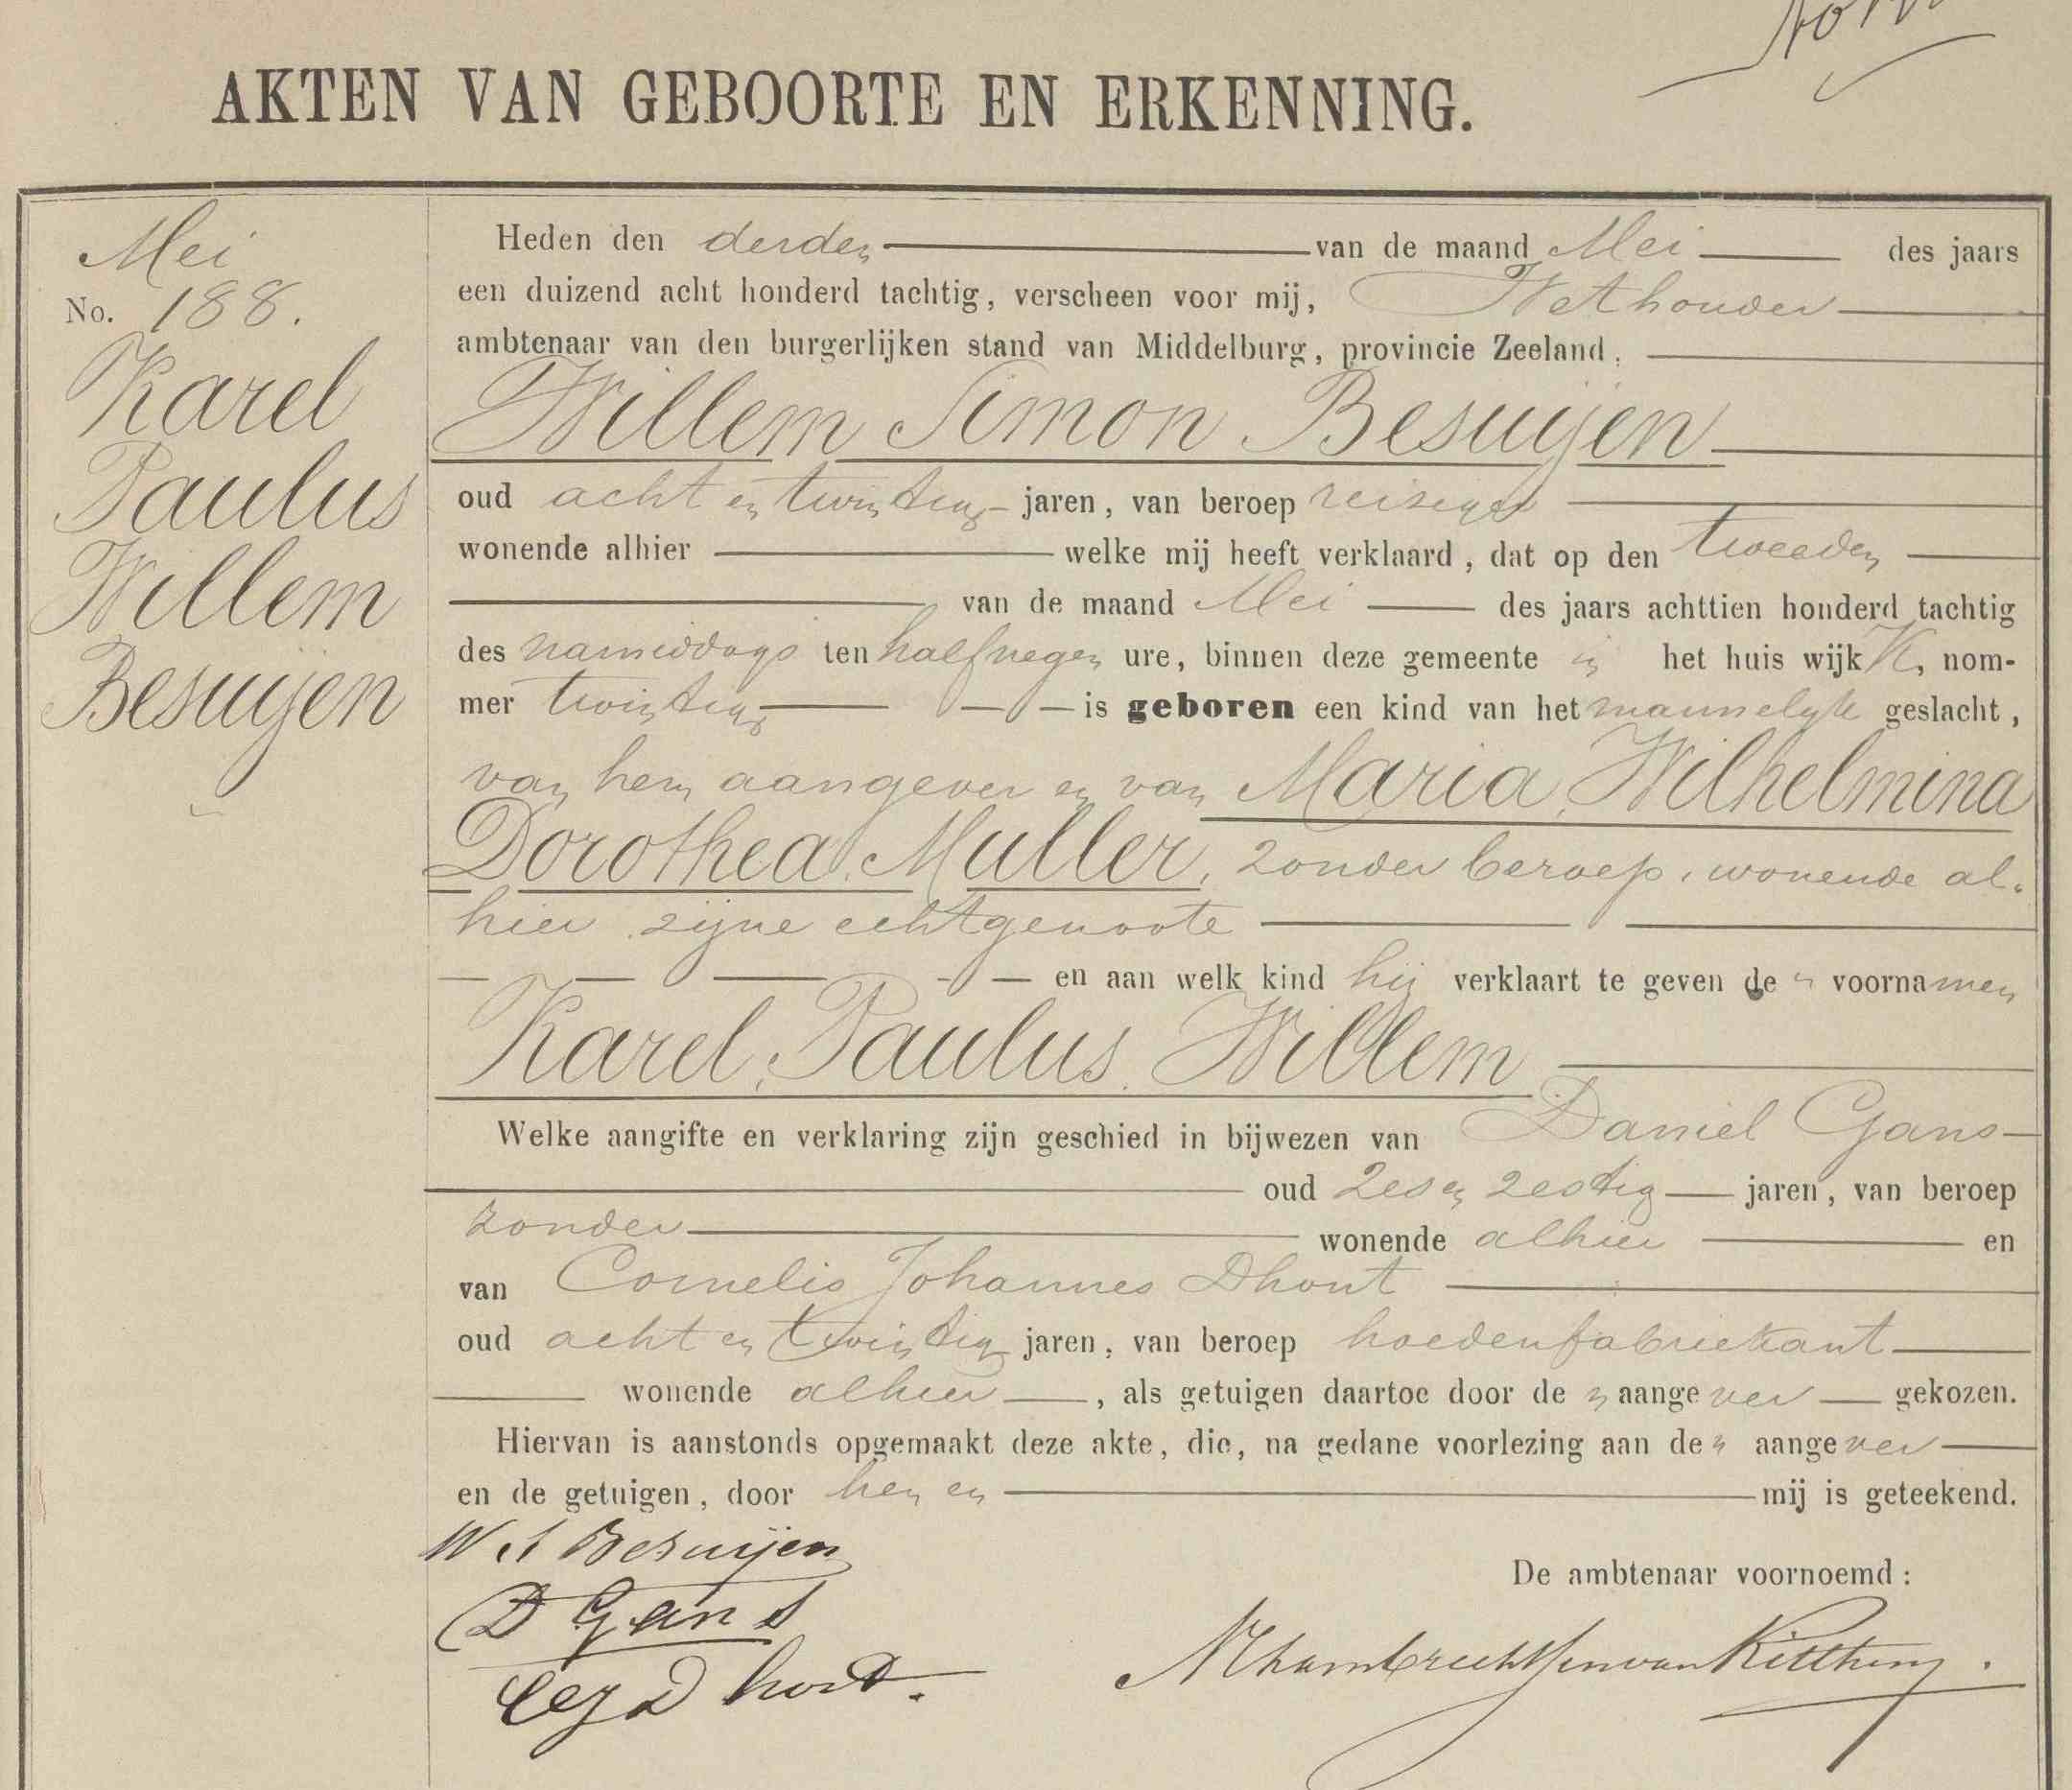 AKTEN VAN GEBOORTE EN ERKENNING.
Mei
No. 188.
Karel
Paulus
Willem
Besuijen
Heden den derden van de maand Mei des jaars
een duizend acht honderd tachtig, verscheen voor mij, Wethouder
ambtenaar van den burgerlijken stand van Middelburg, provincie Zeeland,
Willem Simon Besuijen
oud acht en twintig jaren, van beroep reiziger
wonende alhier welke mij heeft verklaard, dat op den tweeden
van de maand Mei des jaars achttien honderd tachtig
des namiddags ten half negen ure, binnen deze gemeente in het huis wijk K, nom-
mer twintig is geboren een kind van het mannelijk geslacht,
van hem aangever en van Maria Wilhelmina
Dorothea Muller, zonder beroep, wonende al-
hier zijne echtgenoote
en aan welk kind hij verklaart te geven de n voornamen
Karel Paulus Willem
Welke aangifte en verklaring zijn geschied in bijwezen van Daniel Gans
oud zes en zestig jaren, van beroep
zonder wonende alhier en
van Cornelis Johannes Dhont
oud acht en twintig jaren, van beroep hoedenfabriekant
wonende alhier, als getuigen daartoe door de n aangever gekozen.
Hiervan is aanstonds opgemaakt deze akte, die, na gedane voorlezing aan de n aangever
en de getuigen, door hen en mij is geteekend.
W S Besuijen
D Gans
C J D hont.
De ambtenaar voornoemd: